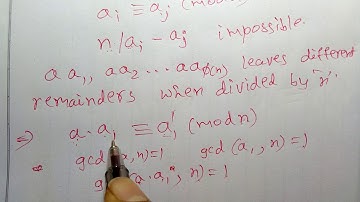 aᵢ ≡ aⱼ (mod n)
n/aᵢ - aⱼ impossible.
a a₁, aa₂ ... aaφ(n) leaves different
remainders when divided by 'n'.
⇒ a. aᵢ ≡ a'ᵢ (mod n)
gcd (a, n)=1 gcd (aᵢ, n)=1
gcd (a.aᵢ, n)=1